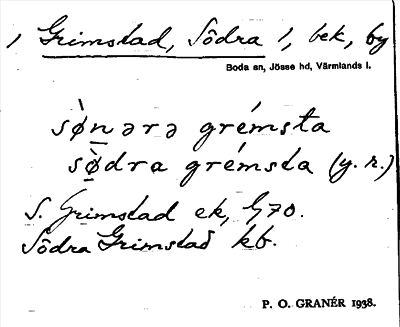 1 Grimstad, Södra 1, bek, by
Boda sn, Jösse hd, Värmlands l.
sø̀nərə grémsta
sø̀dra grémsta (y. r.)
S. Grimstad ek, G70.
Södra Grimstad kb.
P. O. GRANÉR 1938.